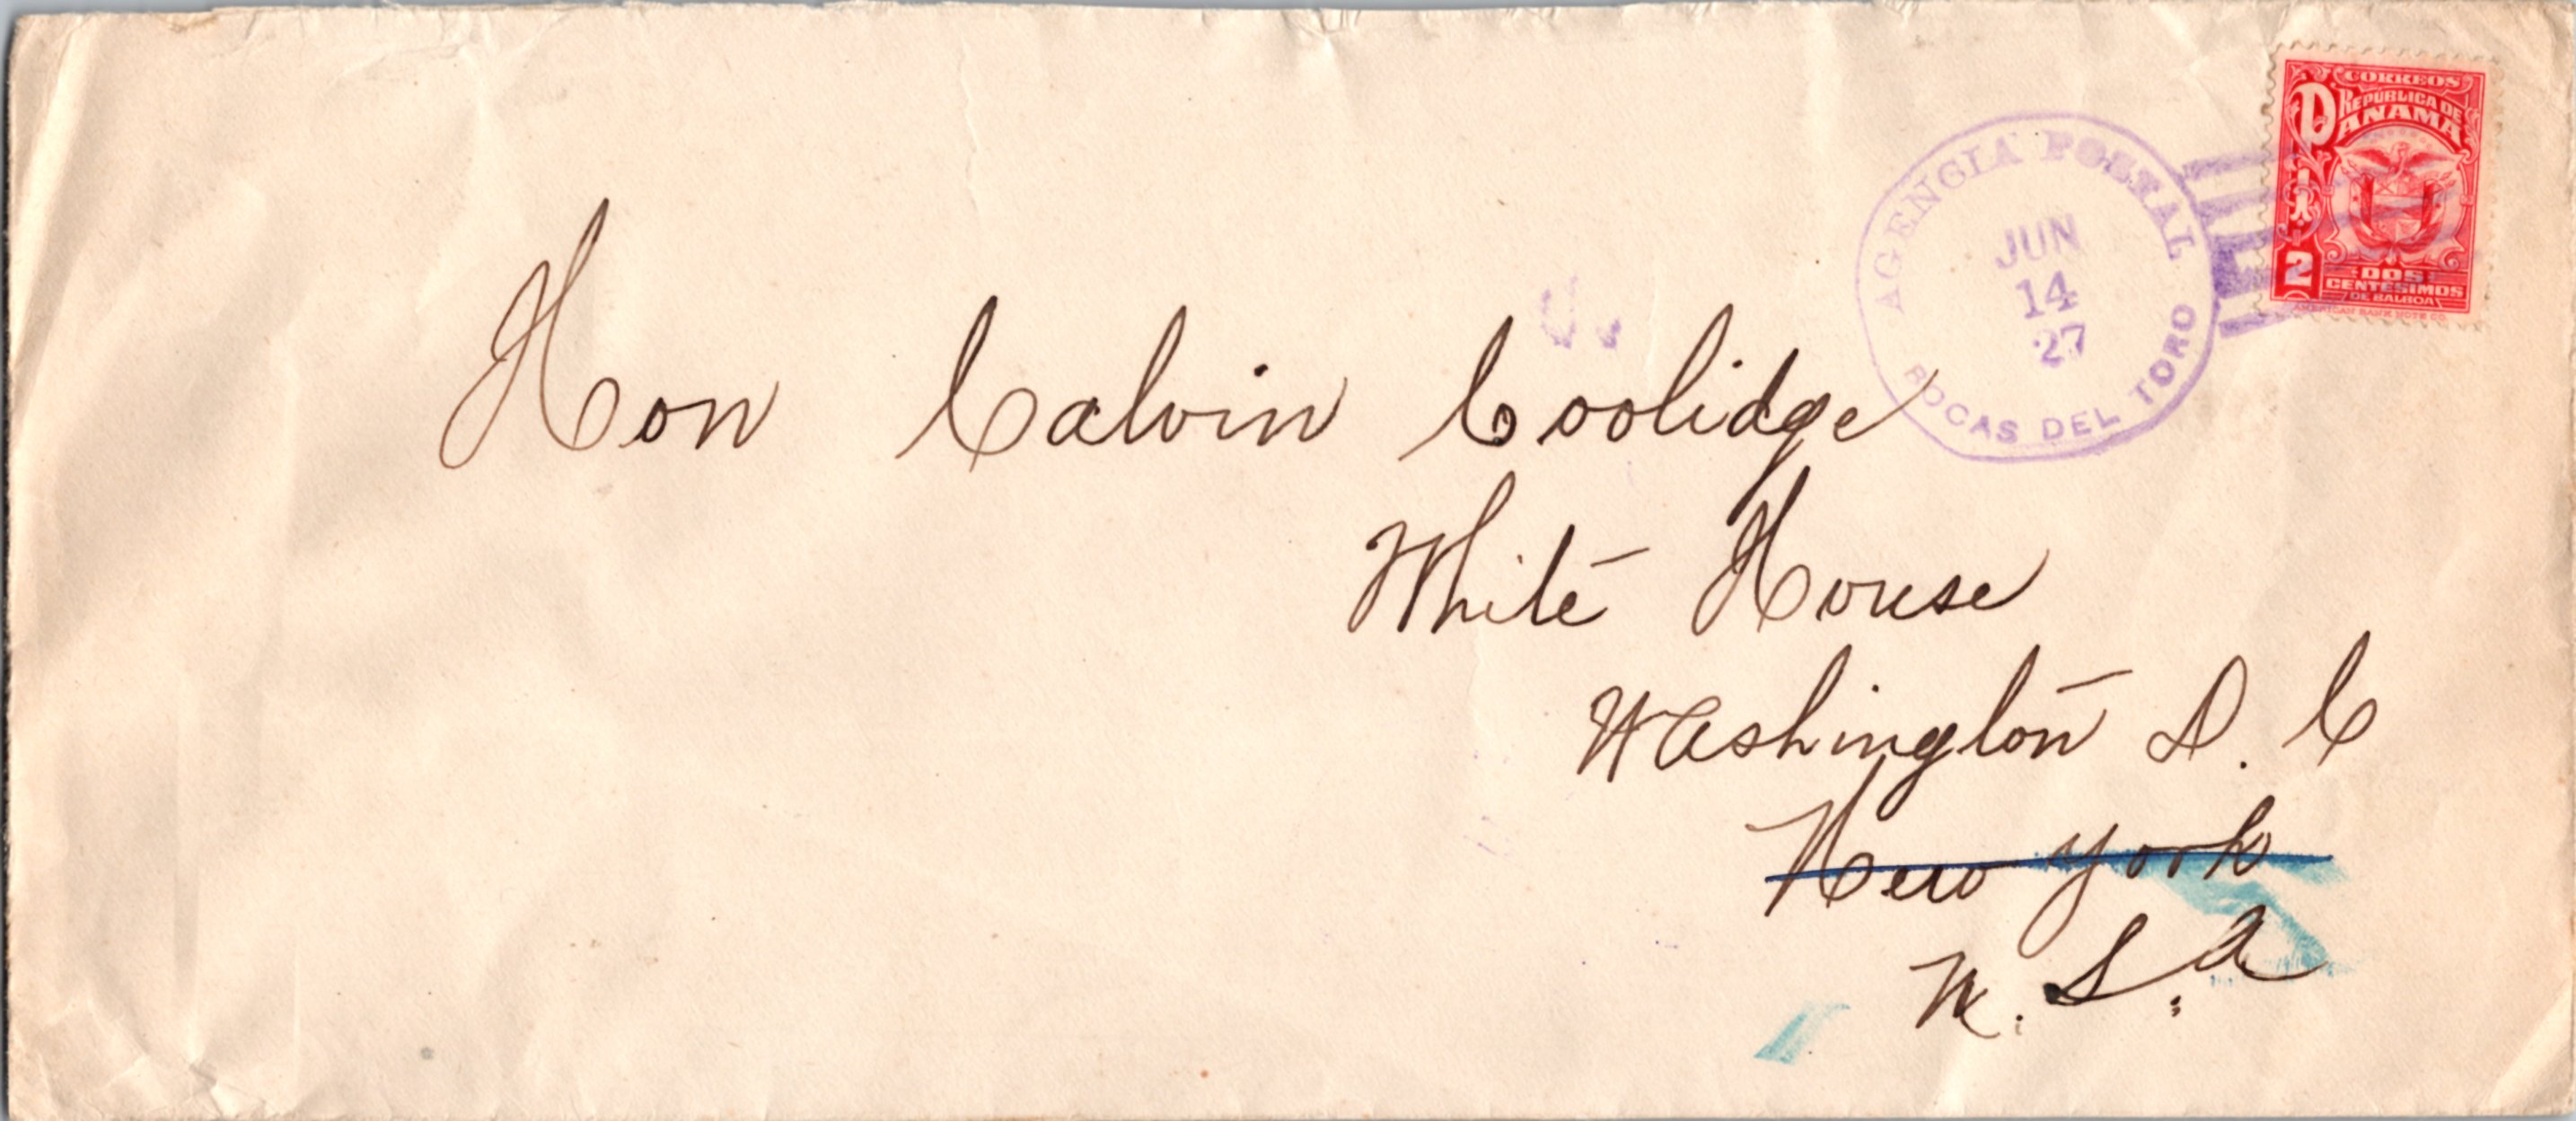 CORREOS
REPUBLICA DE
PANAMA
2
DOS
CENTESIMOS
DE BALBOA
AMERICAN BANK NOTE CO.
AGENCIA POSTAL
JUN
14
27
BOCAS DEL TORO
Hon Calvin Coolidge
White House
Washington D. C
New York
U. S. A